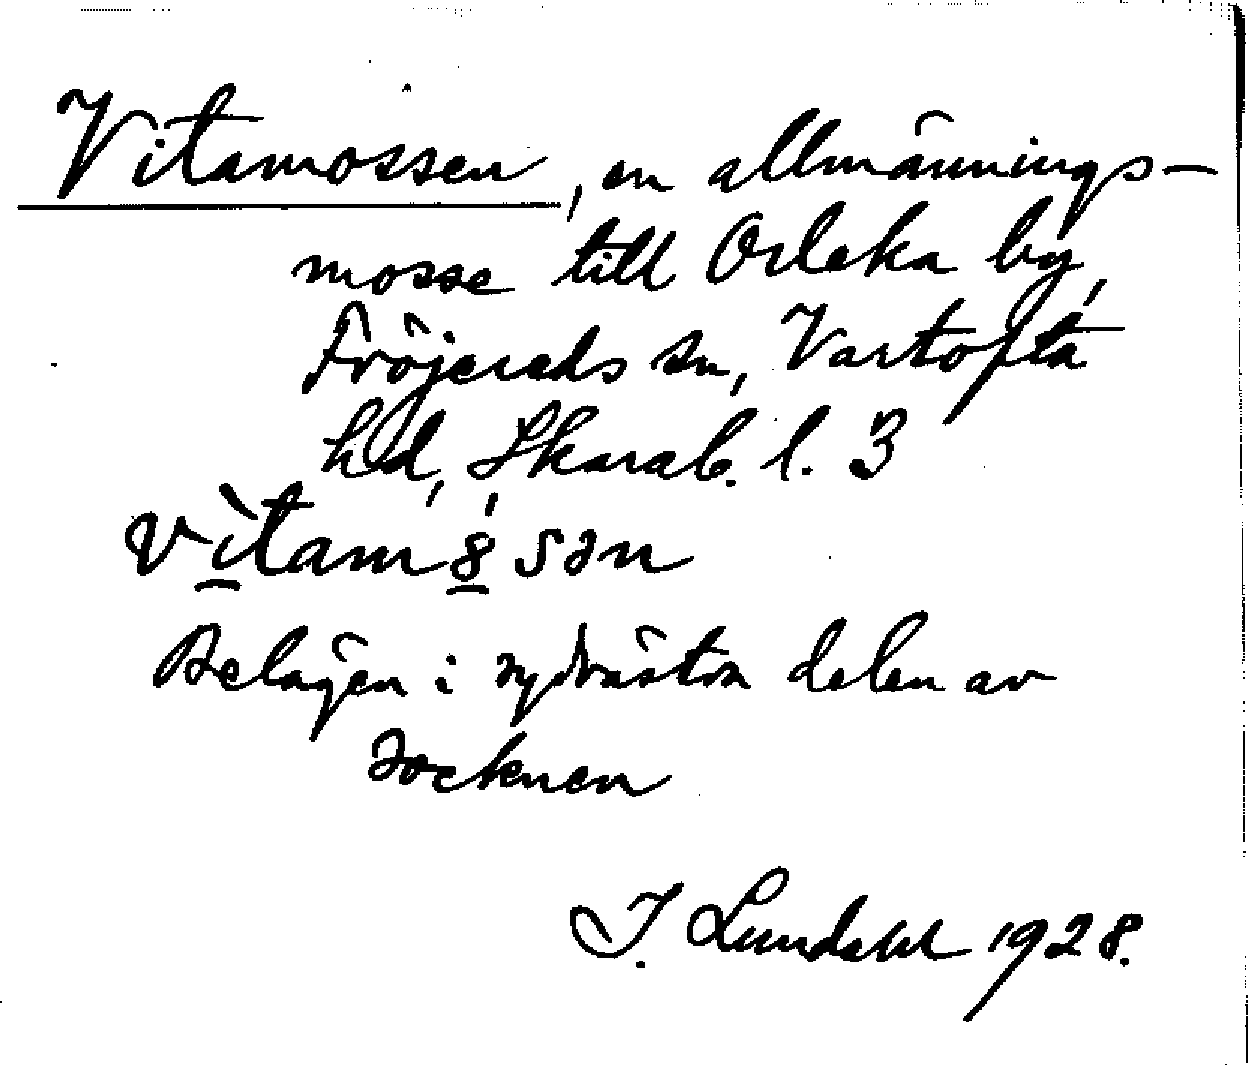 Vitamossen, en allmännings-
mosse till Orleka by,
Fröjereds sn, Vartofta
hd, Skarab. l. 3
vìtam8́sən
Belägen i sydvästra delen av
socknen
J. Lundahl 1928.